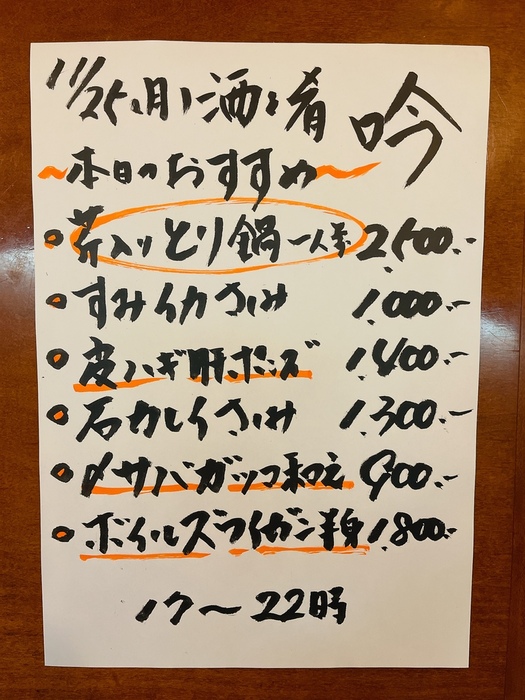 11/25(月) 酒と肴 吟
〜本日のおすすめ〜
芹入りとり鍋 一人前 2,500.-
すみイカさしみ 1,000.-
皮ハギ肝ポンズ 1,400.-
石カレイさしみ 1,300.-
〆サバガッコ和え 900.-
ボイルズワイガニ半身 1,800.-
17〜22時